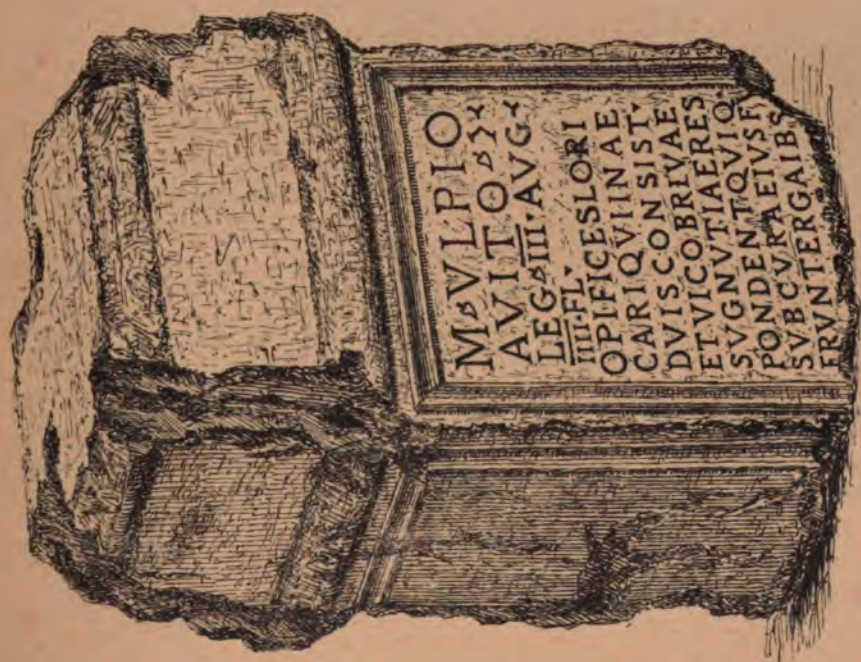 M ▸ VLPIO
AVITO ▸
LEG ▸ III · AVG
IIII · FL ·
OPIFICES LORI
CARI QVIINAE
DVIS CONSIST ·
ET VICO BRIVAE
SVGNVTIA ERES
PONDENT QVIQ ·
SVB CVRA EIVS F
FRVNTERGAIBS